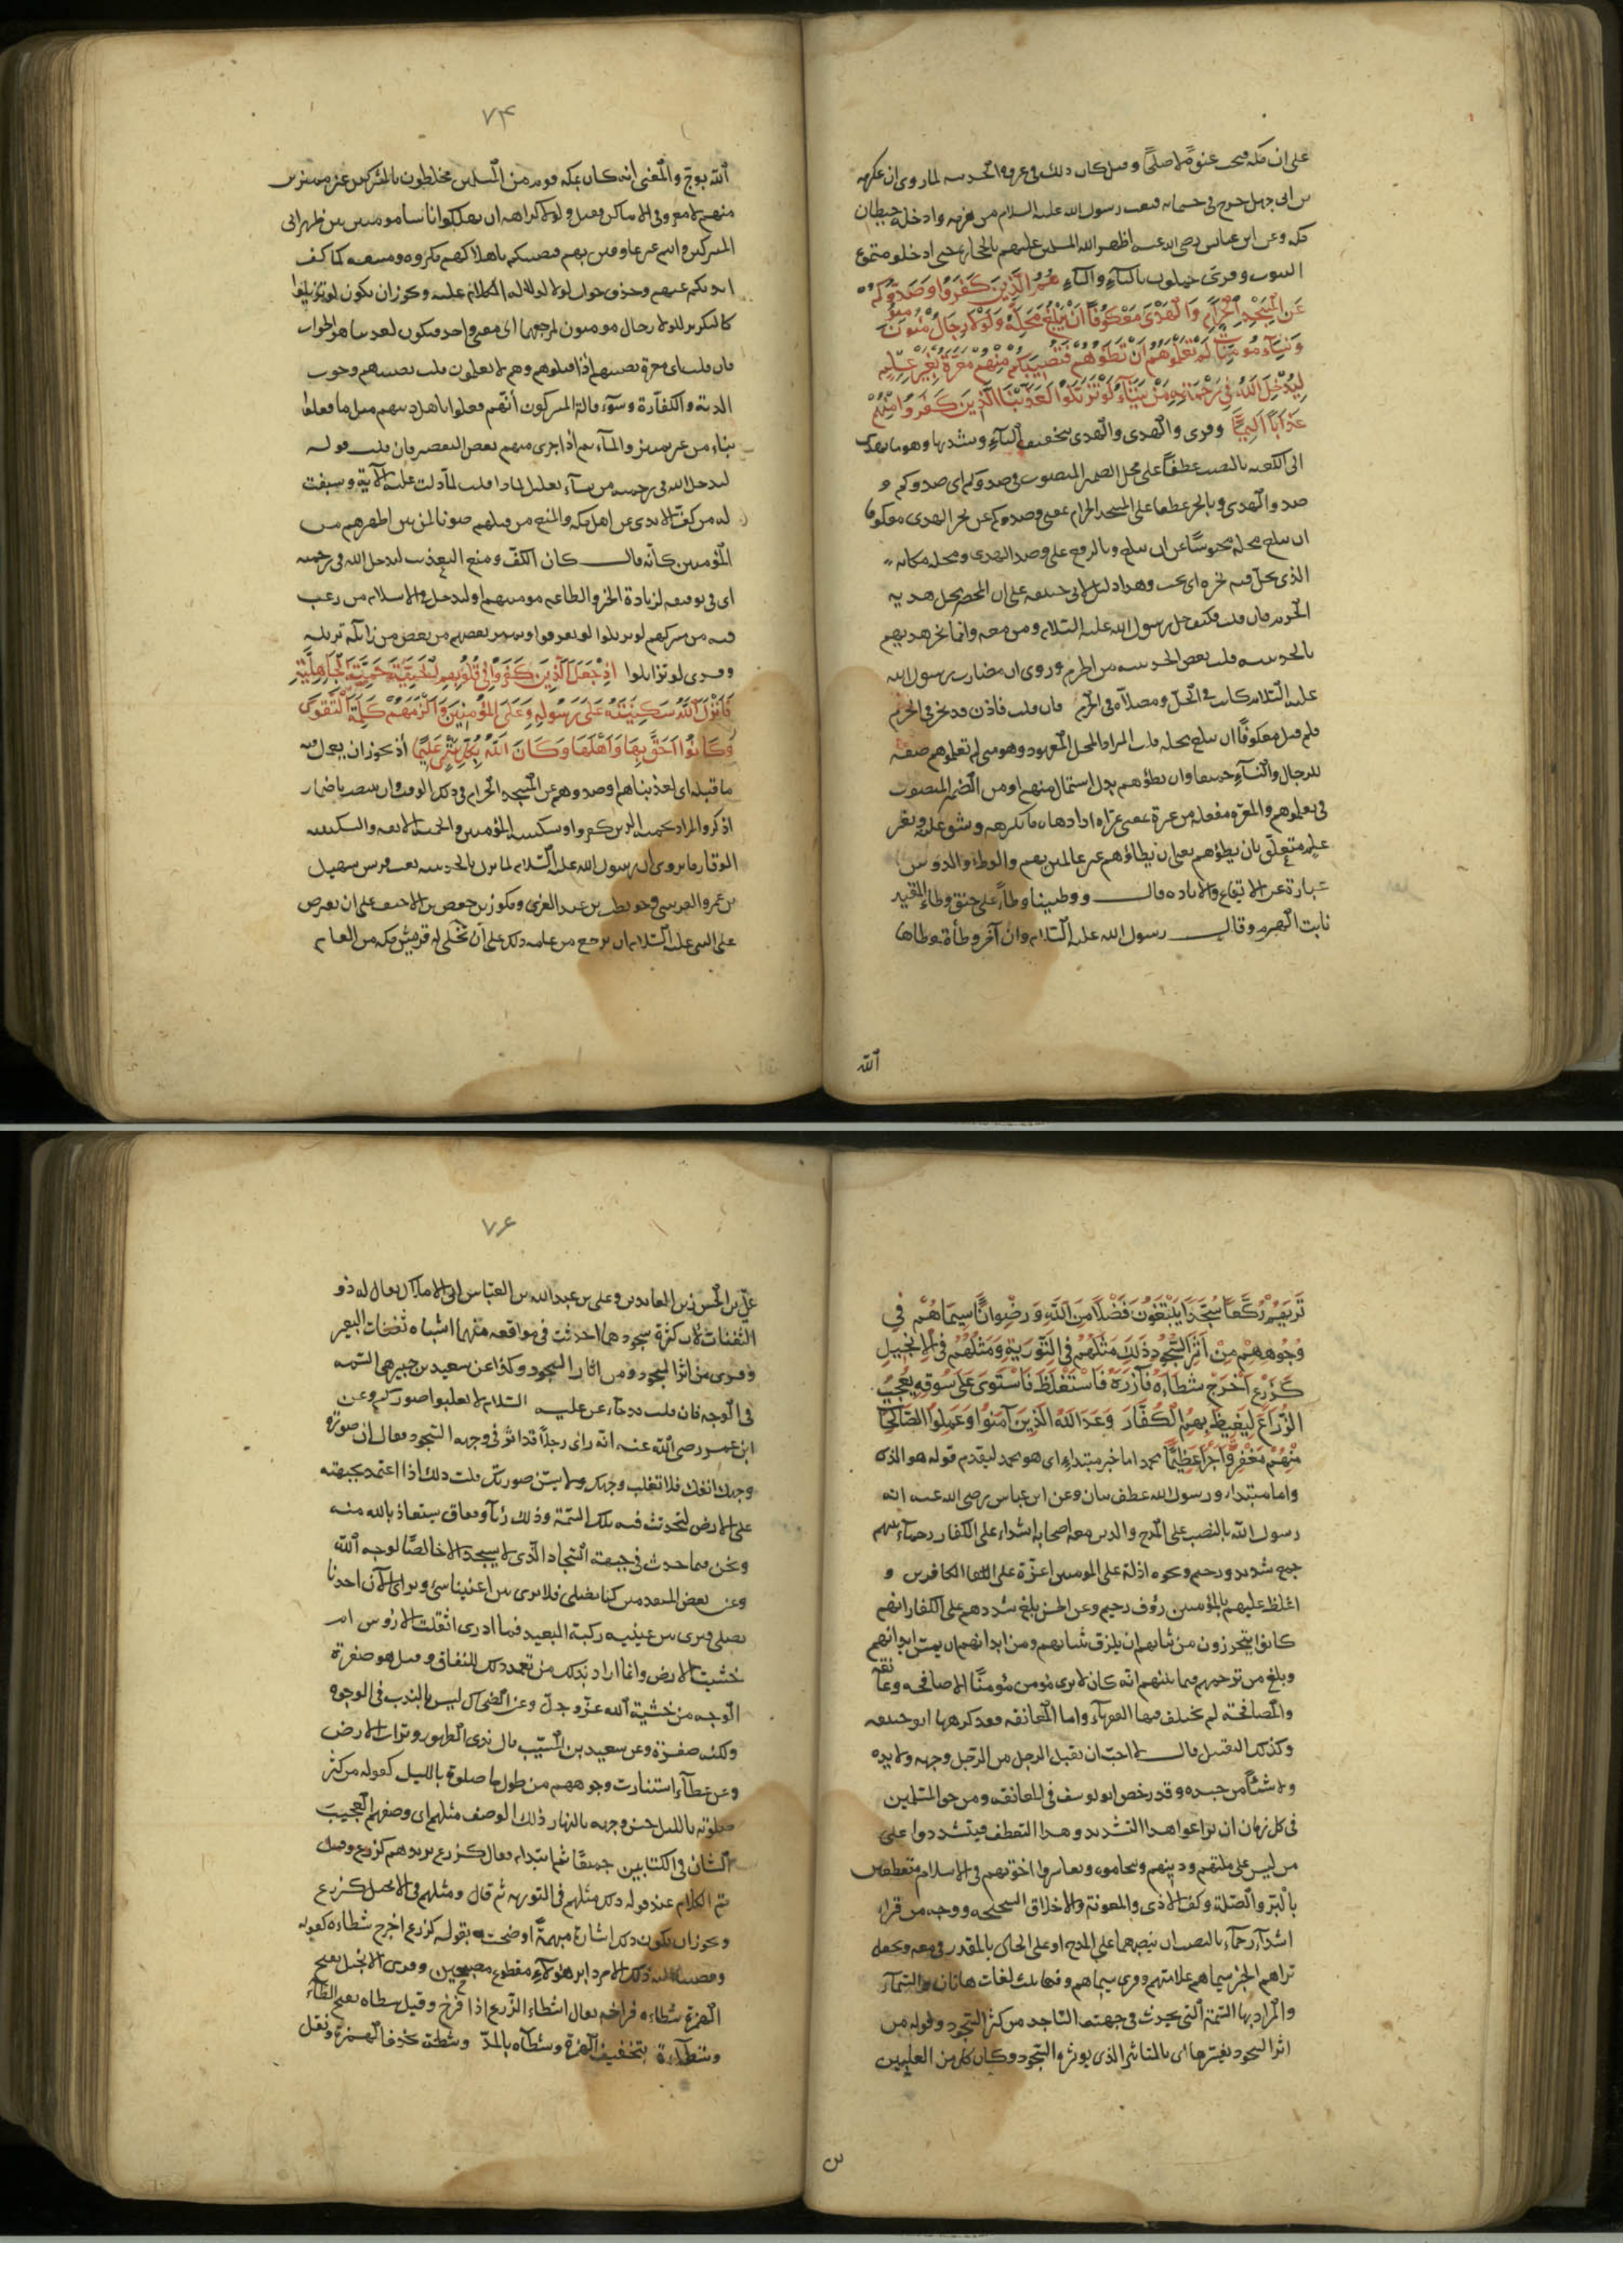 على ان مكة فتحت عنوة لا صلحا وقيل كان ذلك في غزوة الحديبية لما روى ان عكرمة
بن ابي جهل خرج في خمسمائة فبعث رسول الله عليه السلام من هزمه وادخله حيطان
مكة وعن ابن عباس رضي الله عنه اظهر الله المسلمين عليهم بالحجارة حتى ادخلوهم
البيوت وقرئ تعملون بالتاء والياء هُمُ الَّذِينَ كَفَرُوا وَصَدُّوكُمْ
عَنِ الْمَسْجِدِ الْحَرَامِ وَالْهَدْيَ مَعْكُوفًا أَنْ يَبْلُغَ مَحِلَّهُ وَلَوْلَا رِجَالٌ مُؤْمِنُونَ
وَنِسَاءٌ مُؤْمِنَاتٌ لَمْ تَعْلَمُوهُمْ أَنْ تَطَؤُهُمْ فَتُصِيبَكُمْ مِنْهُمْ مَعَرَّةٌ بِغَيْرِ عِلْمٍ
لِيُدْخِلَ اللَّهُ فِي رَحْمَتِهِ مَنْ يَشَاءُ لَوْ تَزَيَّلُوا لَعَذَّبْنَا الَّذِينَ كَفَرُوا مِنْهُمْ
عَذَابًا أَلِيمًا وقرئ والهدى والهدي بتخفيف الياء وتشديدها وهو ما يهدى
الى الكعبة بالنصب عطفا على محل الضمير المنصوب في صدوكم اى صدوكم و
صدوا الهدي وبالجر عطفا على المسجد الحرام بمعنى وصدوكم عن نحر الهدي معكوفا
ان يبلغ محله محبوسا عن ان يبلغ وبالرفع على وصد الهدي ومحله مكانه
الذي يحل فيه نحره اى يجب وهذا دليل لابي حنيفة على ان المحصر محل هديه
الحرم فان قلت فكيف حل رسول الله عليه السلام ومن معه وانما نحر هديهم
بالحديبية قلت بعض الحديبية من الحرم وروى ان مضارب رسول الله
عليه السلام كانت في الحل ومصلاه في الحرم فان قلت فاذن قد نحر في الحرم
فلم قيل معكوفا ان يبلغ محله قلت المراد المحل المعهود وهو منى لم تعلموهم صفة
للرجال والنساء جميعا وان تطؤهم بدل اشتمال منهم او من الضمير المنصوب
في تعلموهم والمعرة مفعلة من عره بمعنى عراه اذا دهاه ما يكرهه ويشق عليه وبغير
علم متعلق بان تطؤهم يعني ان تطاؤهم غير عالمين بهم والوطء والدوس
عبارة عن الايقاع والابادة قال ووطئتنا وطأ على حنق وطأ المقيد
نابت الهرم وقال رسول الله عليه السلام وان آخر وطأة وطأها
الله
٧٤
الله بوج والمعنى انه كان بمكة قوم من المسلمين مختلطون بالمشركين غير متميزين
منهم ولا معروفي الاماكن فقيل ولولا كراهة ان تهلكوا اناسا مومنين بين ظهراني
المشركين وانتم غير عارفين بهم فتصيبكم باهلاكهم مكروه ومشقة لما كف
ايديكم عنهم وحذف جواب لولا لدلالة الكلام عليه ويجوز ان يكون لو تزيلوا
كالتكرير للولا رجال مومنون لمرجعهما الى معنى واحد ويكون لعذبنا هو الجواب
فان قلت اى معرة تصيبهم اذا قتلوهم وهم لا يعلمون قلت يصيبهم وجوب
الدية والكفارة وسوء قالة المشركين أنهم فعلوا باهل دينهم مثل ما فعلوا
بنا من غير تمييز والمأثم اذا جرى منهم بعض التقصير فان قلت قوله
ليدخل الله في رحمته من يشاء تعليل لماذا قلت لما دلت عليه الآية وسيقت
له من كف الايدي عن اهل مكة والمنع من قتلهم صونا لمن بين اظهرهم من
المؤمنين كأنه قال كان الكف ومنع التعذيب ليدخل الله في رحمته
اى في توفيقه لزيادة الخير والطاعة مومنيهم او ليدخل في الاسلام من رغب
فيه من مشركيهم لو تزيلوا لو تفرقوا وتميز بعضهم من بعض من زاله يزيله
وقرئ لو تزايلوا إِذْ جَعَلَ الَّذِينَ كَفَرُوا فِي قُلُوبِهِمُ الْحَمِيَّةَ حَمِيَّةَ الْجَاهِلِيَّةِ
فَأَنْزَلَ اللَّهُ سَكِينَتَهُ عَلَى رَسُولِهِ وَعَلَى الْمُؤْمِنِينَ وَأَلْزَمَهُمْ كَلِمَةَ التَّقْوَى
وَكَانُوا أَحَقَّ بِهَا وَأَهْلَهَا وَكَانَ اللَّهُ بِكُلِّ شَيْءٍ عَلِيمًا اذ يجوز ان يعمل فيه
ما قبله اى لعذبناهم او صدوهم عن المسجد الحرام في ذلك الوقت وان ينتصب باضمار
اذكر والمراد بحمية الذين كفروا وسكينة المؤمنين والحمية الانفة والسكينة
الوقار ما روى ان رسول الله عليه السلام لما نزل بالحديبية بعثت قريش سهيل
بن عمرو القرشي وحويطب بن عبد العزى ومكرز بن حفص بن الاخيف على ان يعرض
على النبي عليه السلام ان يرجع من عامه ذلك على أن تخلي له قريش مكة من العام
تَرَاهُمْ رُكَّعًا سُجَّدًا يَبْتَغُونَ فَضْلًا مِنَ اللَّهِ وَرِضْوَانًا سِيمَاهُمْ فِي
وُجُوهِهِمْ مِنْ أَثَرِ السُّجُودِ ذَلِكَ مَثَلُهُمْ فِي التَّوْرَيةِ وَمَثَلُهُمْ فِي الْإِنْجِيلِ
كَزَرْعٍ أَخْرَجَ شَطْأَهُ فَآزَرَهُ فَاسْتَغْلَظَ فَاسْتَوَى عَلَى سُوقِهِ يُعْجِبُ
الزُّرَّاعَ لِيَغِيظَ بِهِمُ الْكُفَّارَ وَعَدَ اللَّهُ الَّذِينَ آمَنُوا وَعَمِلُوا الصَّالِحَاتِ
مِنْهُمْ مَغْفِرَةً وَأَجْرًا عَظِيمًا محمد اما خبر مبتداء اى هو محمد لتقدم قوله هو الذي
واما مبتداء ورسول الله عطف بيان وعن ابن عباس رضي الله عنه انه
رسول الله بالنصب على المدح والذين معه اصحابه اشداء على الكفار رحماء بينهم
جمع شديد ورحيم ونحوه اذلة على المومنين اعزة على الكافرين و
اغلظ عليهم بالمؤمنين رؤف رحيم وعن الحسن بلغ تشددهم على الكفار انهم
كانوا يتحرزون من ثيابهم ان يلزق ثيابهم ومن ابدانهم ان يمس ابدانهم
وبلغ من ترحمهم فيما بينهم انه كان لا يرى مؤمن مؤمنا الا صافحه وعانقه
والمصافحة لم يختلف فيها الفقهاء واما المعانقة فقد كرهها ابو حنيفة
وكذلك التقبيل قال لا احب ان يقبل الرجل من الرجل وجهه ولا يده
ولا شيئا من جسده وقد رخص ابو يوسف في المعانقة ومن حق المسلمين
في كل زمان ان يراعوا هذا التشديد وهذا التعطف فيتشددوا على
من ليس على ملتهم ودينهم ويتحاموه ويعاشروا اخوتهم في الاسلام متعطفين
بالبر والصلة وكف الاذى والمعونة والاخلاق السجيحة ووجه من قرا
اشداء رحماء بالنصب ان ينصبهما على المدح او على الحال بالمقدر في معه ويجعل
تراهم الخبر سيماهم علامتهم وقرئ سيمياهم وفيها ثلث لغات هاتان والسيماء
والمراد بها السمة التي تحدث في جبهة الساجد من كثرة السجود وقوله من
اثر السجود يفسرها اى بالتاثير الذي يوثره السجود وكان كل من العليين
٧٦
علي بن الحسن زين العابدين وعلى بن عبد الله بن العباس ابي الاملاك يقال له ذو
الثفنات لان كثرة سجودهما احدثت في مواقعه منهما اشباه ثفنات البعير
وقرئ من اثر السجود ومن اثار السجود وكذا عن سعيد بن جبير هي السمة
في الوجه فان قلت فقد جاء عن النبي عليه السلام لا تعلبوا صوركم وعن
ابن عمر رضي الله عنه انه راى رجلا قد اثر في وجهه السجود فقال ان صورة
وجهك انفك فلا تعلب وجهك ولا تشن صورتك قلت ذلك اذا اعتمد بجبهته
على الارض لتحدث فيه تلك السمة وذلك رئاء ونفاق يستعاذ بالله منه
ونحن فيما حدث في جبهة السجاد الذي لا يسجد الا خالصا لوجه الله
وعن بعض المتقدمين كنا نصلي فلا يرى بين اعيننا شئ ونرى الآن احدنا
يصلي فيرى بين عينيه ركبة البعير فما ادري اثقلت الارؤس ام
خشنت الارض وانما اراد بذلك من تعمد ذلك للنفاق وقيل هو صفرة
الوجه من خشية الله عز وجل وعن الضحاك ليس بالندب في الوجوه
ولكنه صفرة وعن سعيد بن المسيب قال ندى الطهور وتراب الارض
وعن عطاء استنارت وجوههم من طول ما صلوا بالليل كقوله من كثر
صلوته بالليل حسن وجهه بالنهار ذلك الوصف مثلهم اى وصفهم العجيب
الشان في الكتابين جميعا ثم ابتداء فقال كزرع يريد هم كزرع وقيل
تم الكلام عند قوله ذلك مثلهم في التورية ثم قال ومثلهم في الانجيل كزرع
ويجوز ان يكون ذلك اشارة مبهمة اوضحت بقوله كزرع اخرج شطاه كقوله
وقضينا اليه ذلك الامر ان دابر هؤلاء مقطوع مصبحين وقرئ الانجيل بفتح
الهمزة شطاه فراخه يقال اشطاء الزرع اذا فرخ وقيل شطاه بفتح الطاء
وشطاه بتخفيف الهمزة وشطاه بالمد وشطه بحذف الهمزة ونقل